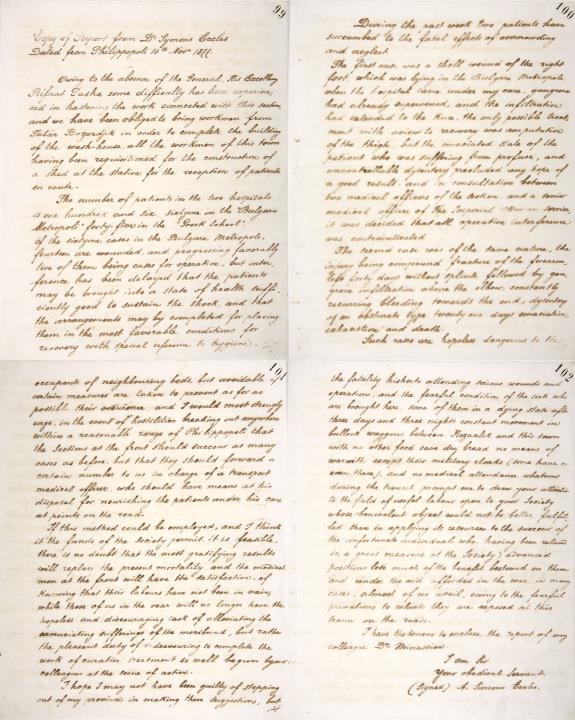 99
Copy of Report from Dr Symons Eccles
Dated from Philippopole 10th Novr 1877.
Owing to the absence of the General, His Excellency
Rifaat Pasha, some difficulty has been experien-
ced in hastening the work connected with this section
and we have been obliged to bring workmen from
Tatar Bazardjik in order to complete the building
of the wash-house, all the workmen of this town
having been requisitioned for the construction of
a shed at the station for the reception of patients
en route.
The number of patients in the two hospitals
is one hundred and six, sixty one in the Bulgare
Metropole, forty five in the Greek School;
of the sixty one cases in the Bulgare Metropole,
fourteen are wounded, and progressing favorably
two of them being cases for operation, but inter-
ference has been delayed that the patients
may be brought into a state of health suffi-
ciently good to sustain the shock, and that
the arrangements may be completed for placing
them in the most favorable conditions for
recovery with special reference to hygiene.
100
During the past week two patients have
succumbed to the fatal effects of overcrowding
and neglect.
The first case was a shell wound of the right
foot, which was lying in the Bulgare Metropole
when the hospital came under my care, gangrene
had already supervened, and the infiltration
had extended to the knee, the only possible treat-
ment with a view to recovery was amputation
of the thigh, but the emaciated state of the
patient who was suffering from profuse, and
uncontrollable dysentery precluded any hope of
a good result, and in consultation between
two medical officers of the section and a senior
medical officer of the Imperial Ottoman Service,
it was decided that all operative interference
was contraindicated.
The second case was of the same nature, the
injury being compound fracture of the forearm,
left forty days without splints followed by gan-
grene infiltration above the elbow, constantly
recurring bleeding towards the end, dysentery
of an obstinate type twenty one days emaciation,
exhaustion and death.
Such cases are hopeless dangerous to the
101
occupants of neighbouring beds, but avoidable if
certain measures are taken to prevent as far as
possible their occurrence, and I would most strongly
urge, in the event of hostilities breaking out anywhere
within a reasonable range of Philippopole that
the Sections at the front should succour as many
cases as before, but that they should forward a
certain number to us in charge of a transport
medical officer, who should have means at his
disposal for nourishing the patients under his care
at points on the road.
If this method could be employed, and I think
if the funds of the society permit, it is feasible,
there is no doubt that the most gratifying results
will replace the present mortality and the medical
men at the front will have the satisfaction, of
knowing that their labours have not been in vain,
while those of us in the rear will no longer have the
hopeless and discouraging task of alleviating the
excruciating sufferings of the moribund, but rather
the pleasant duty of endeavouring to complete the
work of curative treatment so well begun by our
colleagues at the scene of action.
I hope I may not have been guilty of stepping
out of my province in making these suggestions, but
102
the fatality hitherto attending serious wounds and
operation, and the fearful condition of the sick who
are brought here, some of them in a dying state after
three days and three nights constant movement in
bullock waggons between Kyzanlik and this town
with no other food save dry bread no means of
warmth except their military cloaks (some have not
even these), and no medical attendance whatever
during the transit, prompt me to draw your attention
to the field of useful labour open to your Society
whose benevolent object would not be better fulfil-
led than in applying its resources to the succour of
the unfortunate individuals who, having been relieved
in a great measure at the Society's advanced
positions lose much of the benefit bestowed on them
and render the aid afforded in the war, in many
cases, almost of no avail, owing to the fearful
privations to which they are exposed at this
season on the roads.
I have the honor to enclose the report of my
colleague Dr Minassian.
I am Sir
Your obedient Servant.
(signed) A. Symons Eccles.